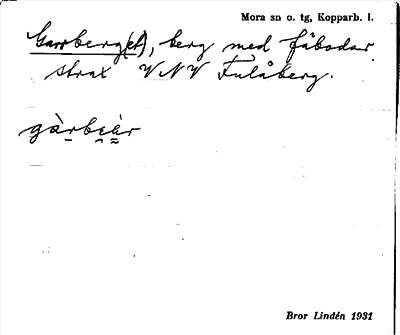 Mora sn o. tg, Kopparb. l.
Garrberg(et), berg med fäbodar
strax VNV Fulåberg.
gàrbɛ̀r
Bror Lindén 1931